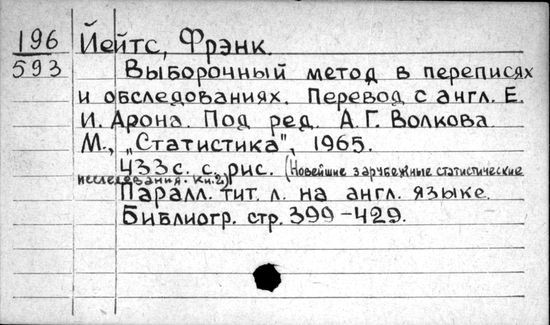 196 Йейтс, Фрэнк.
593 Выборочный метод в переписях
и обследованиях. Перевод с англ. Е.
И. Арона. Под ред. А.Г. Волкова.
М., „Статистика", 1965.
433с. с рис. (Новейшие зарубежные статистические
исследования. Кн.2)
Паралл. тит. л. на англ. языке.
Библиогр. стр. 399-429.